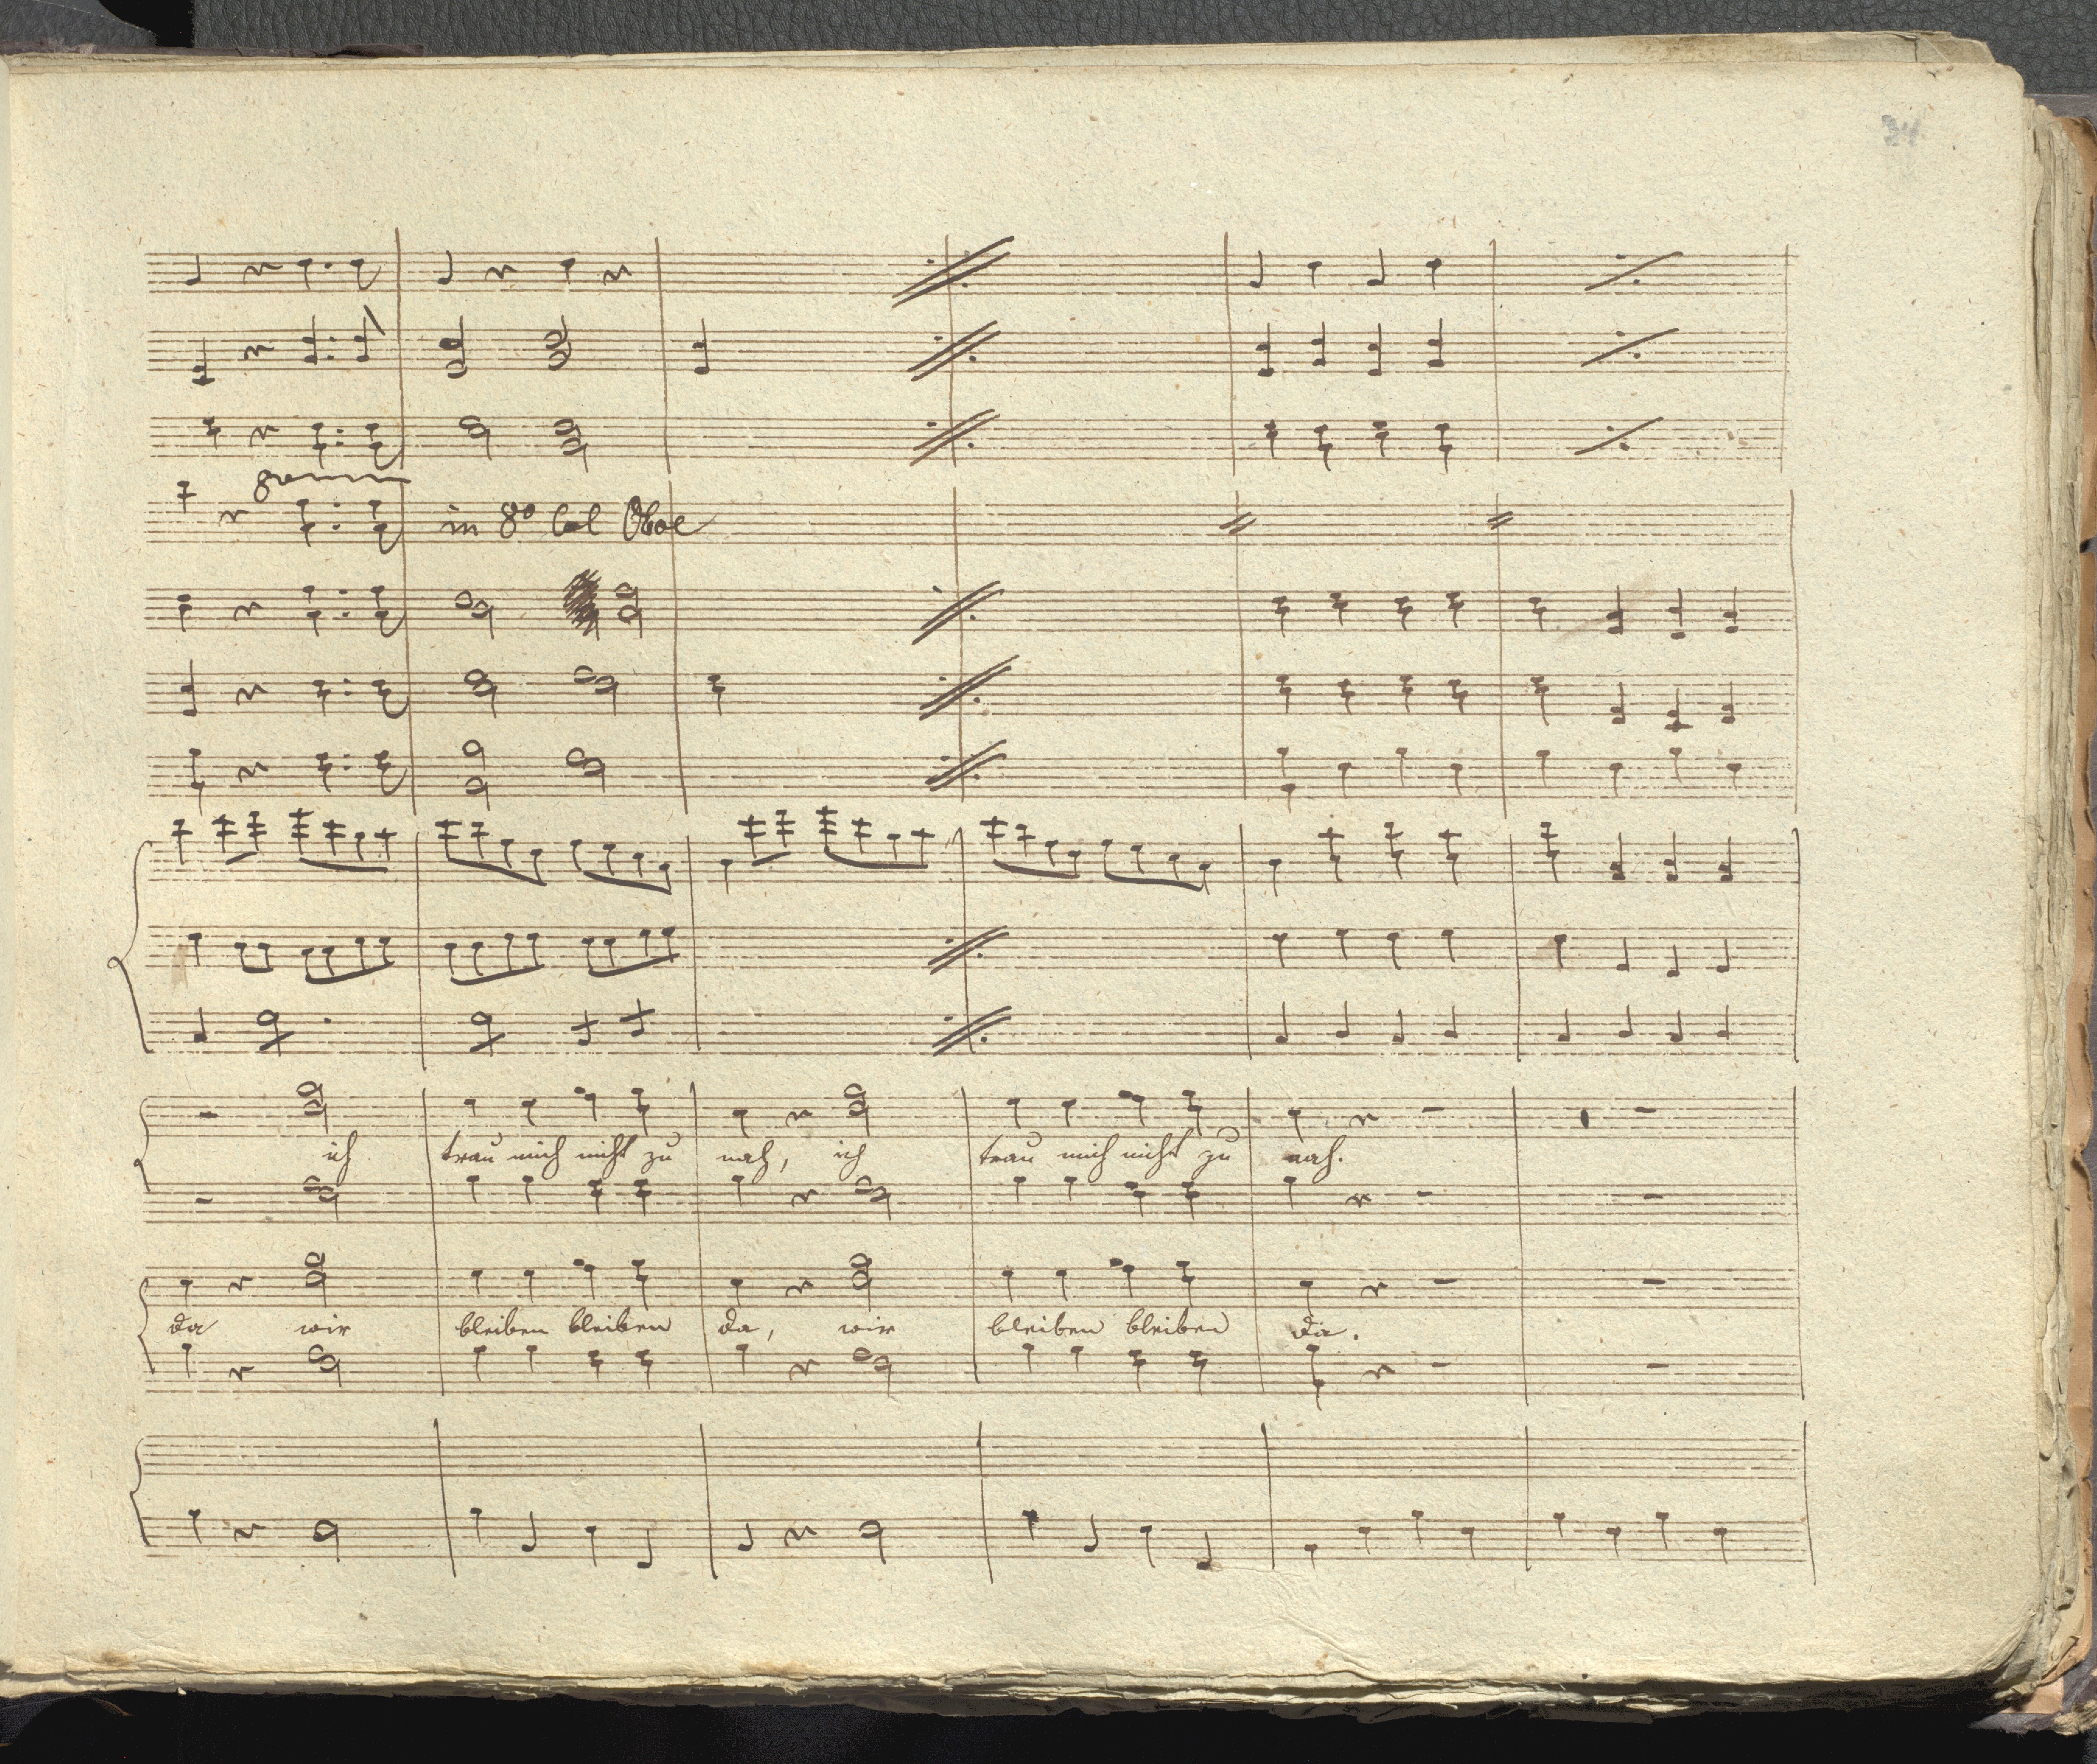 34
8
in 8º Col Oboe
ich trau mich nicht zu nah, ich trau mich nicht zu nah.
da wir bleiben bleiben da, wir bleiben bleiben da.